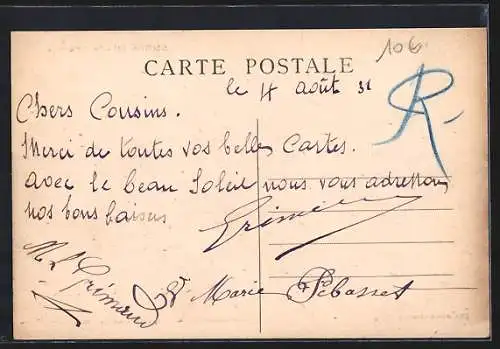 106
CARTE POSTALE
le 4 août 31
Chers Cousins.
Merci de toutes vos belles Cartes.
avec le beau Soleil nous vous adressons
nos bons baisers
Grimaud
Marie Sébasset